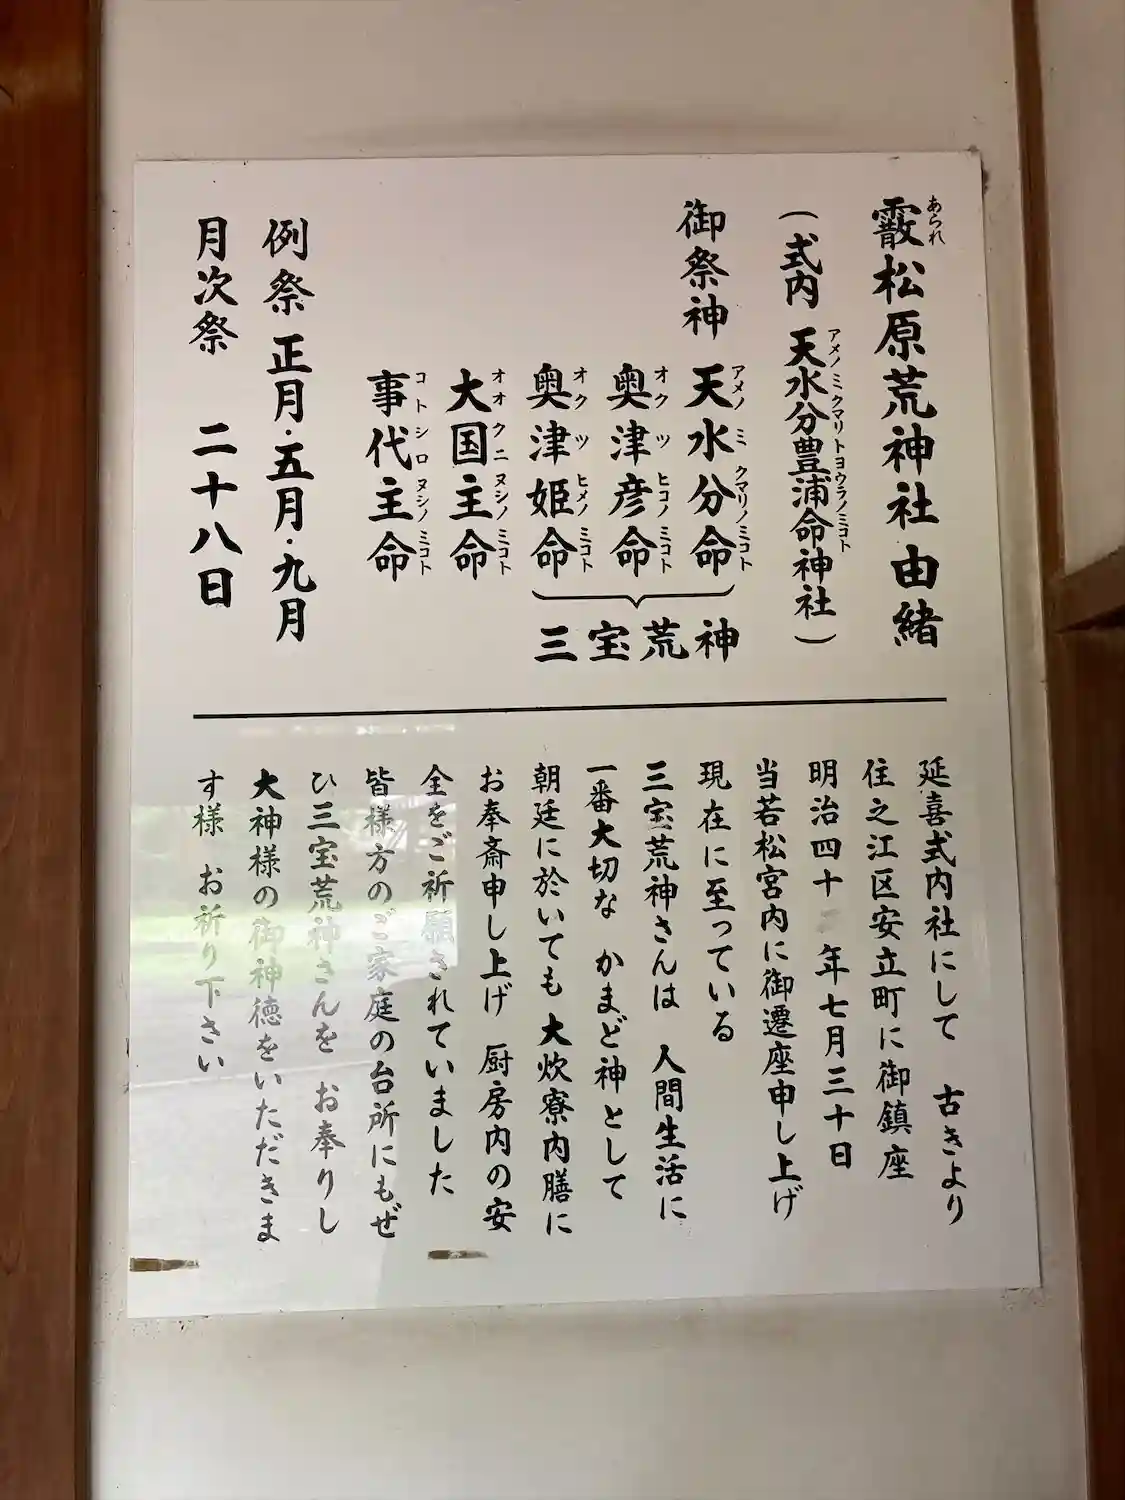 あられ
霰松原荒神社 由緒
アメノミクマリトヨウラノミコト
(式内 天水分豊浦命神社)
御祭神 天水分命
アメノミクマリノミコト
奥津彦命
オクツヒコノミコト
奥津姫命
オクツヒメノミコト
三宝荒神
大国主命
オオクニヌシノミコト
事代主命
コトシロヌシノミコト
例祭 正月・五月・九月
月次祭 二十八日
延喜式内社にして 古きより
住之江区安立町に御鎮座
明治四十 年七月三十日
当若松宮内に御遷座申し上げ
現在に至っている
三宝荒神さんは 人間生活に
一番大切な かまど神として
朝廷に於いても 大炊寮内膳に
お奉斎申し上げ 厨房内の安
全をご祈願されていました
皆様方のご家庭の台所にもぜ
ひ三宝荒神さんを お奉りし
大神様の御神徳をいただきま
す様 お祈り下さい